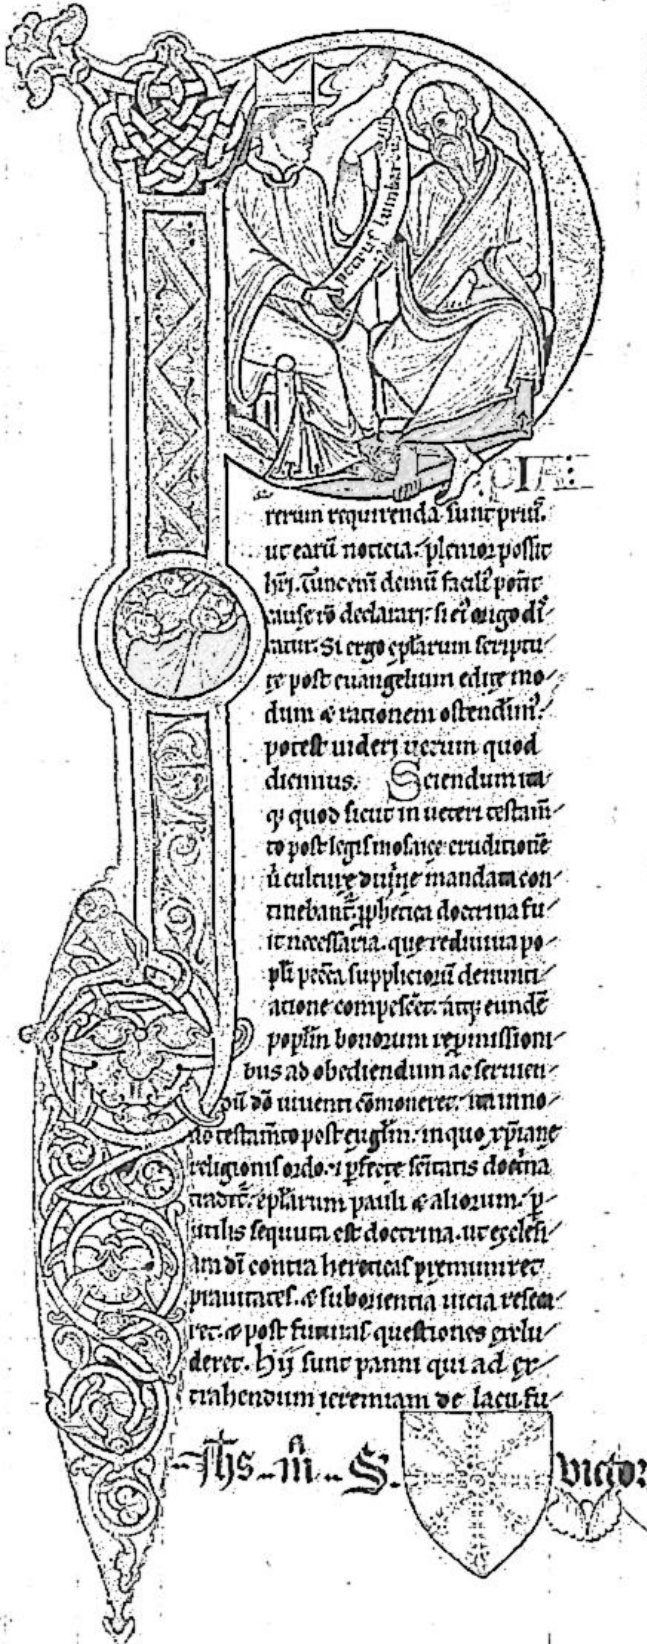 petrus lumbardus
PRINCIPIA
rerum requirenda sunt priu᷒.
ut earū noticia plenior possit
hr̄i. Tunc eni᷒ demū facili᷒ pot̄it
cause rō declarari: si ei᷒ origo di᷒
catur. Si ergo ep̄larum scriptu
re post euangelium edite mo
dum & rationem ostendim᷒:
potest uideri uerum quod
dicimus. Sciendum ita
q᷒ quod sicut in ueteri testam̄
to post legis mosaice eruditionē
ū culture diuīne mandata con
tinebant᷒. ꝓphetica doctrina fu
it necessaria. que rediuiua po
pli pecc̄a suppliciorū denunti
atione compesc̄et. atq; eundē
popl̄m bonorum repmissioni
bus ad obediendum ac seruien
dū dō uiuenti cōmoneret. ita inno
uo testam̄to post eūglm̄. in quo xp̄iane
religionis ordo. & ꝑfecte sc̄itatis doct̄ina
tradit᷒. ep̄larum pauli & aliorum ꝑ
utilis sequuta est doctrina. ut eccl̄esi
am dī contra hereticas premuniret
prauitates. & suborientia uicia reseca
ret. & post futuras questiones exclu
deret. Hij sunt panni qui ad ex
trahendum ieremiam de lacu. fu
Jhs - m̄ - S. victor